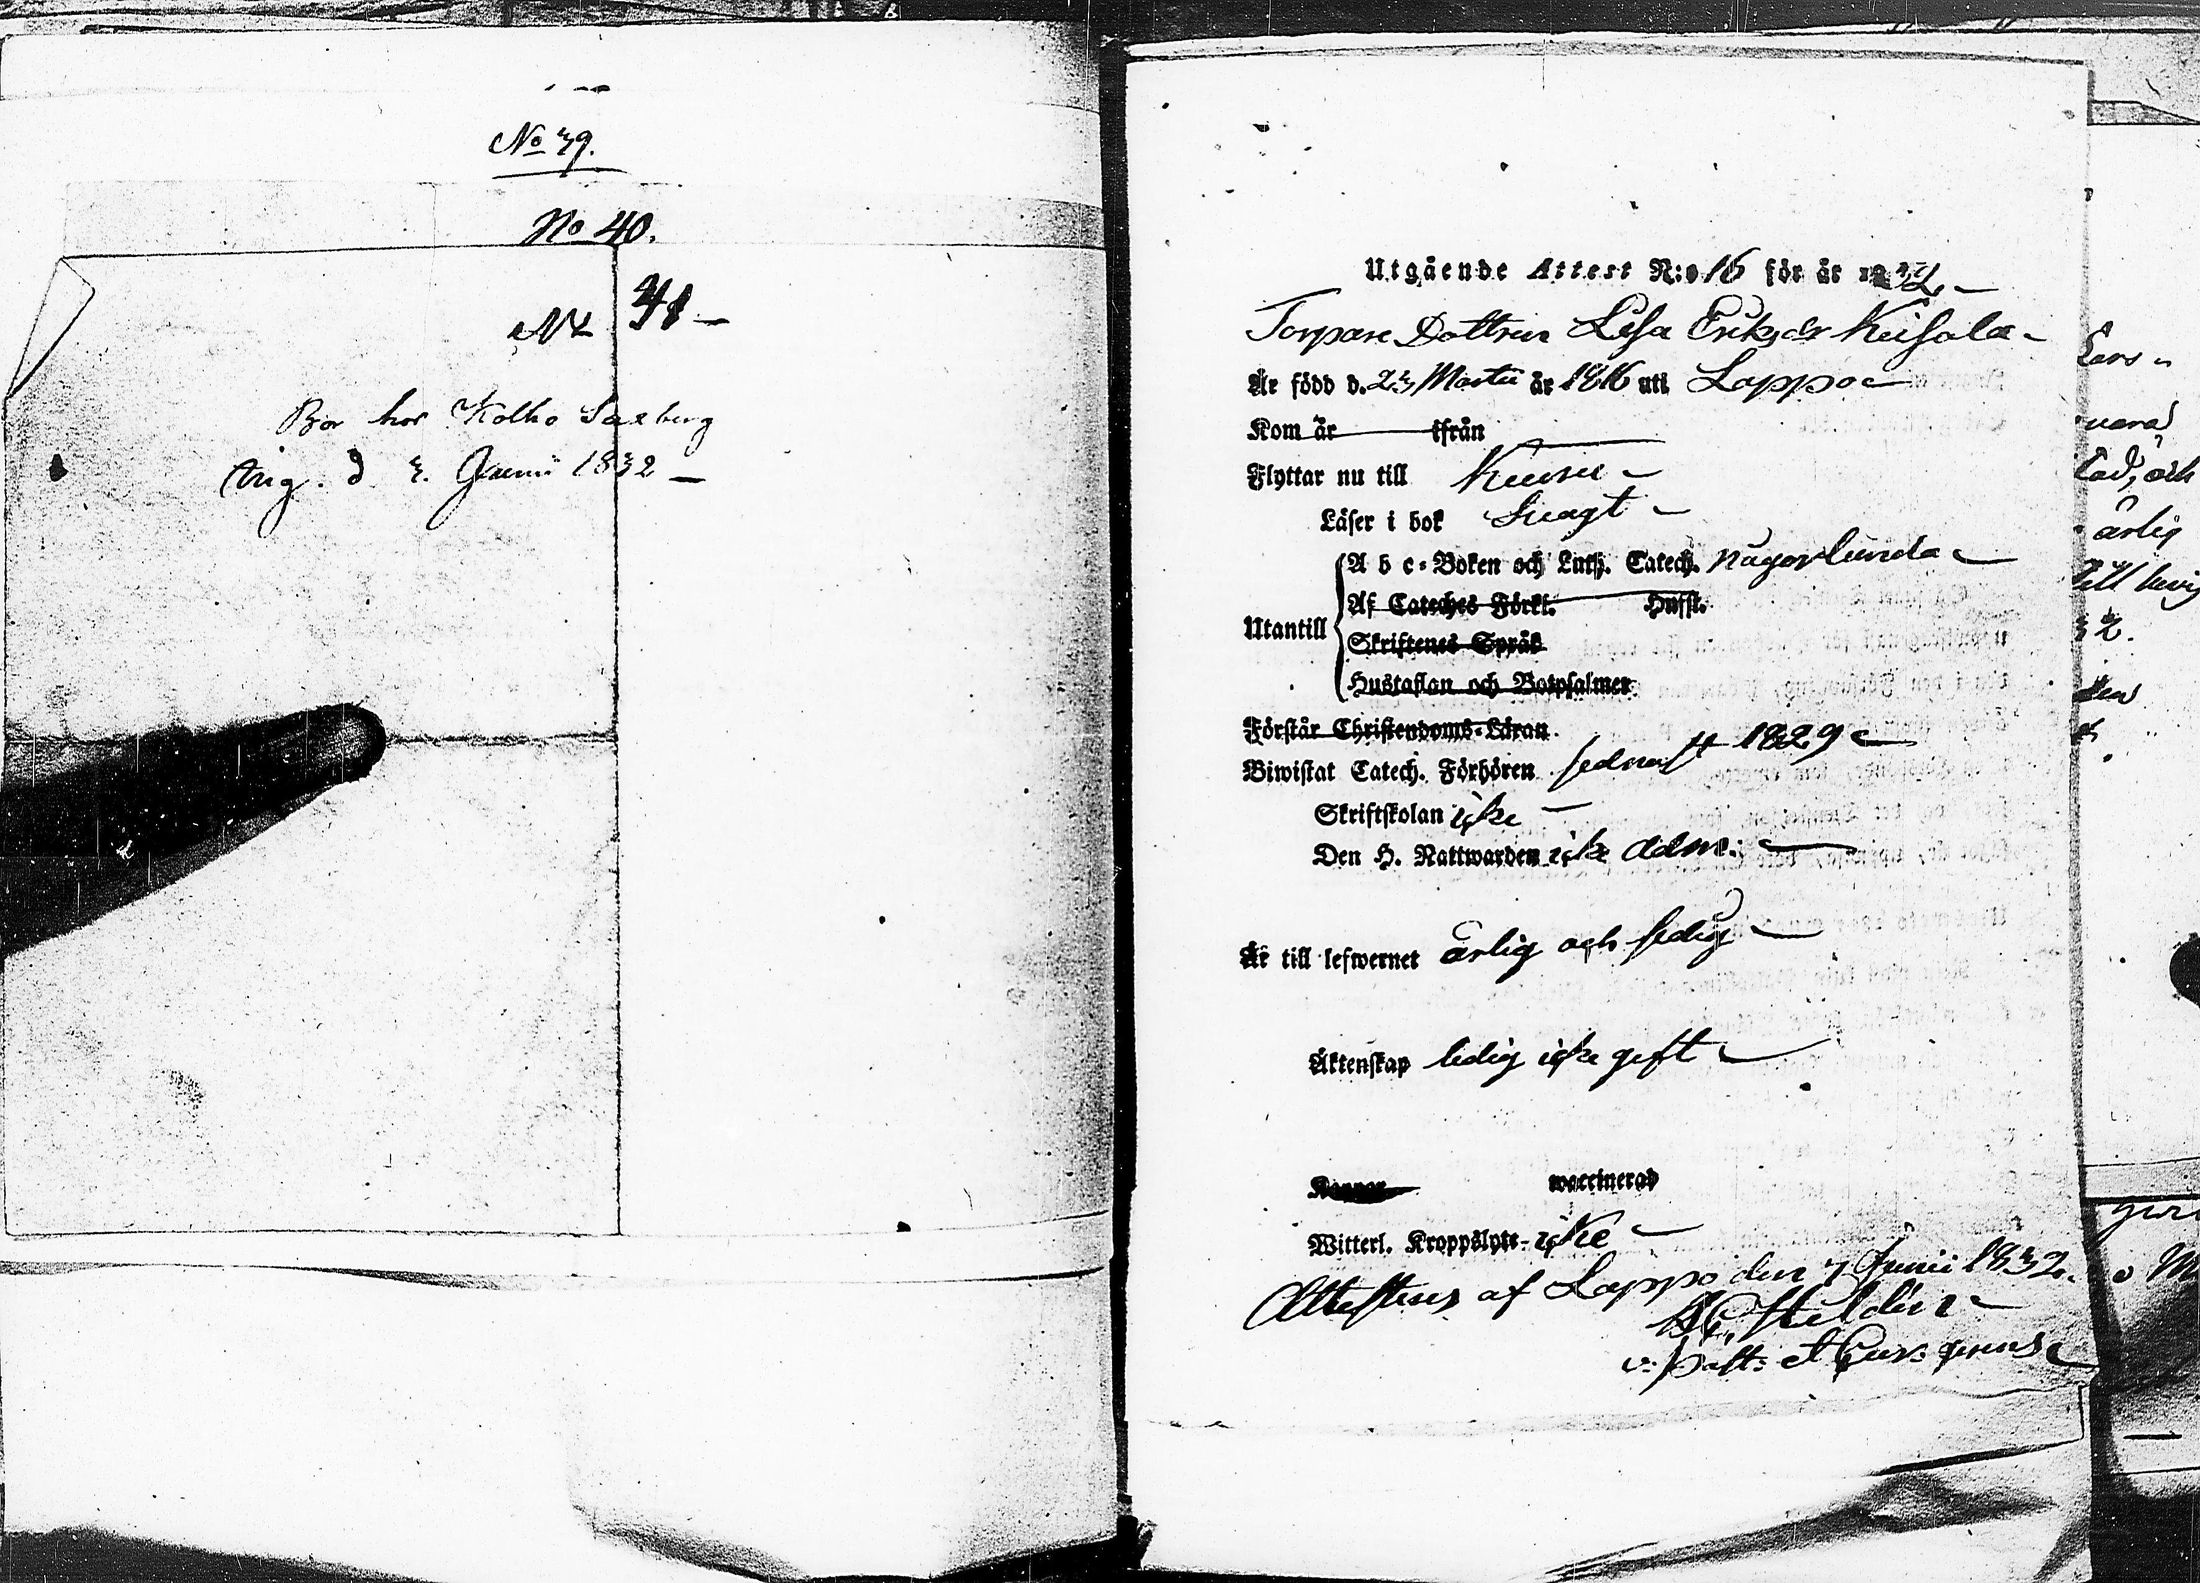 No 39.
No 40.
No 41 —
Bor hos Kolho Saxberg
d 3. Junii 1832 —
Utgående Attest N:o 16 för år 1832. —
Torpare Dottren Lisa Eriksdr Keisala -
Är född d. 23 Martii år 1816 uti Lappo
Kom år ifrån
Flyttar nu till Kuuru -
Läser i bok Svagt -
Utantill
A b c-Boken och Luth. Catech. någorlunda
Af Cateches Förkl. Hufst.
Skriftenes Språk
Hustaflan och Botpsalmer
Förstår Christendoms-Läran.
Biwistat Catech. Förhören sednast 1829
Skriftskolan icke —
Den H. Nattwarden icke adm.
Är till lefwernet ärlig och sedig
Äktenskap ledig icke gift
Koppor waccinerad
Witterl. Kroppslyte- icke
Attesteras af Lappo den 7 Junii 1832.
v: Past: et Cur: gerens
Lars
ärlig